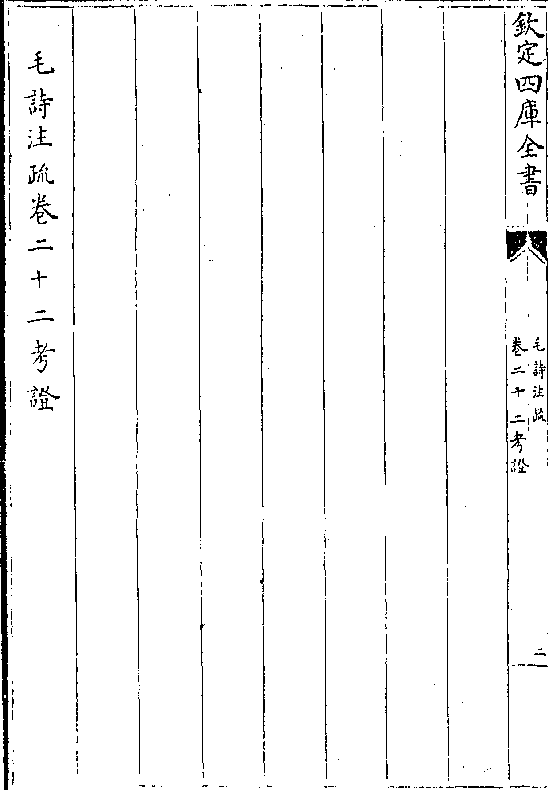 欽定四庫全書
毛詩注疏
卷二十二考證
二
毛詩注疏卷二十二考證